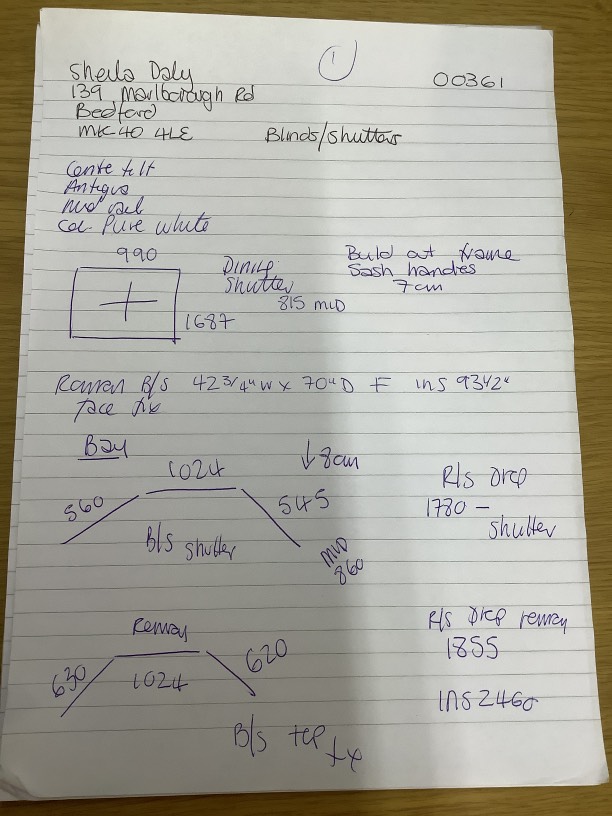 1
00361
Sheila Daly
139 Marlborough Rd
Bedford
MK40 4LE
Blinds/Shutters
Centre tilt
Antigua
Mid rail
Col. Pure White
990
1687
Dining
Shutter
815 MID
Build out frame
Sash handles
7cm
Roman B/S 42 3/4" W x 70" D F INS 93 1/2"
Face fix
Bay
1024
↓8cm
560
545
B/S Shutter
MID
860
R/S Drop
1780 -
Shutter
Roman
630
1024
620
B/S top
fx
R/S Drop roman
1855
INS 2460